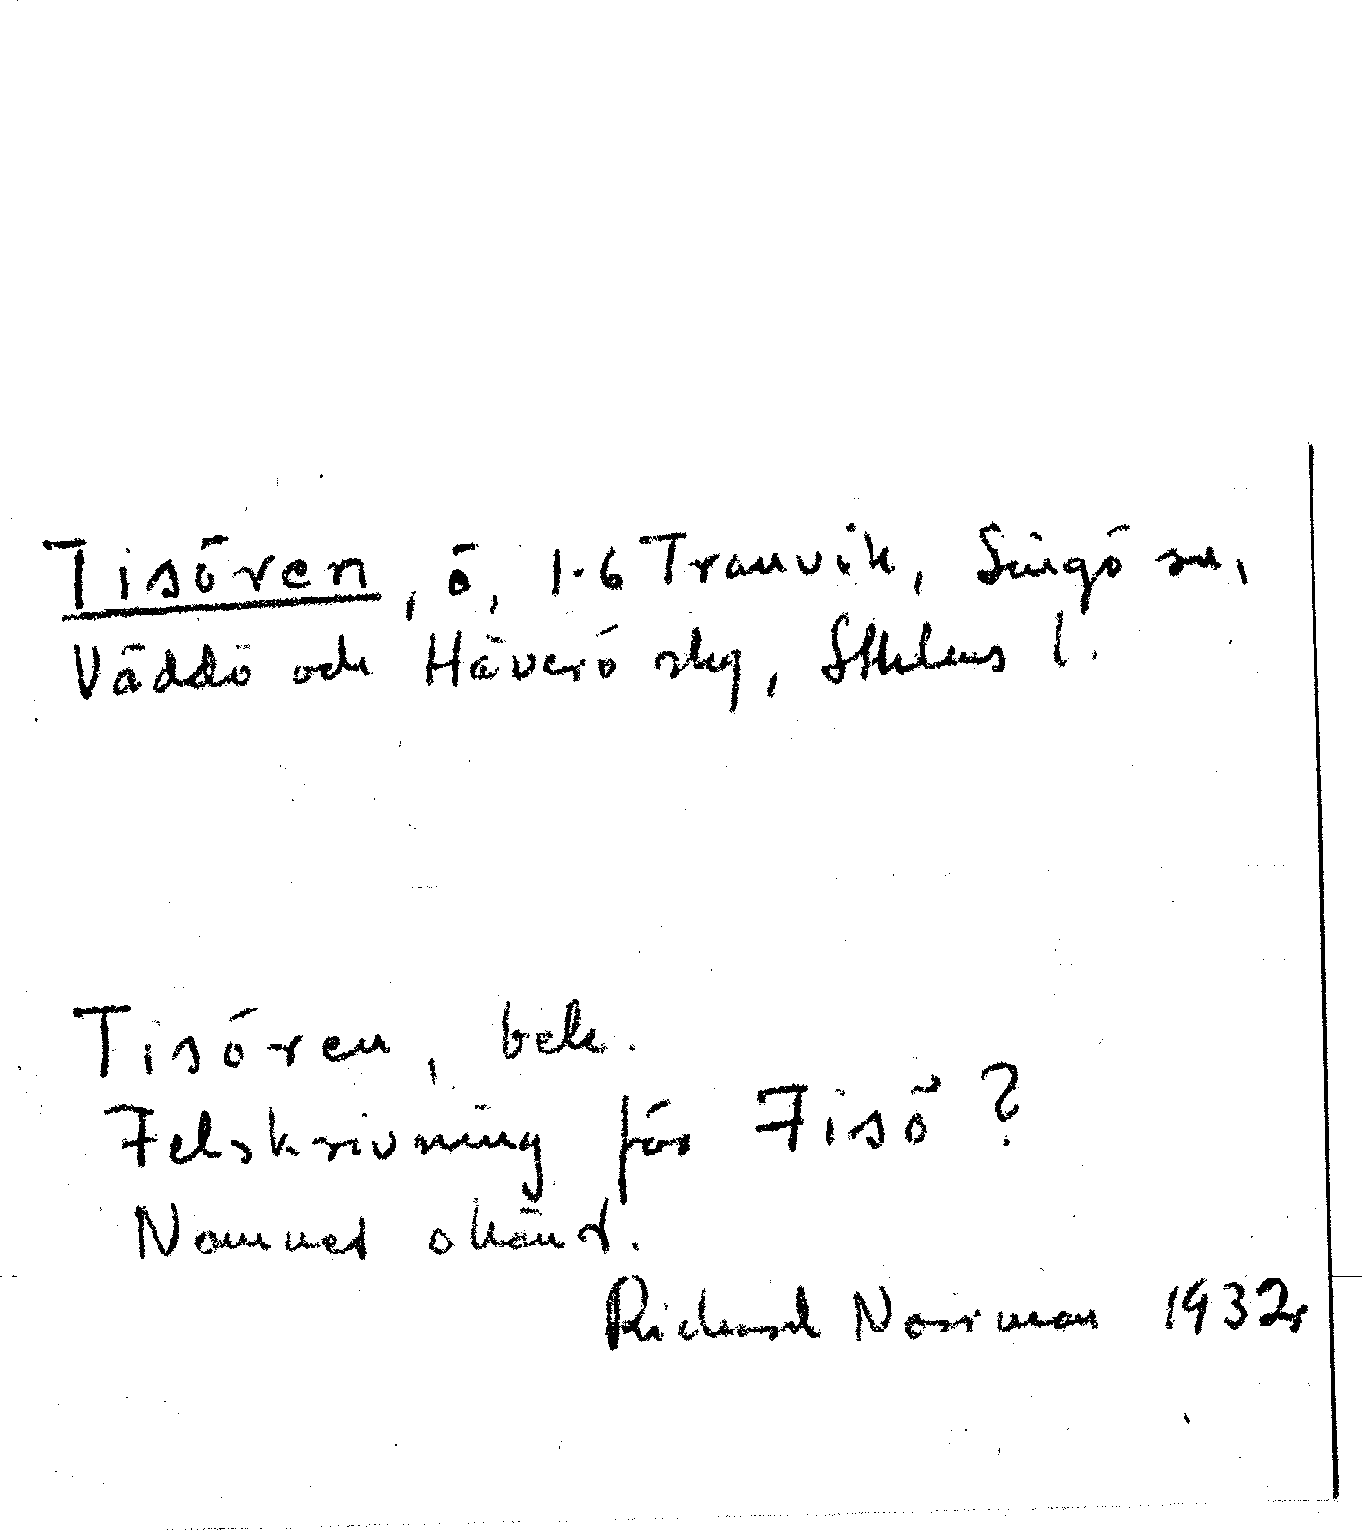 Tisören, ö, 1-6 Tranvik, Singö sn,
Väddö och Häverö skg, Sthlms l.
Tisören, bek.
Felskrivning för Fisö?
Namnet okänt.
Richard Norrman 1932